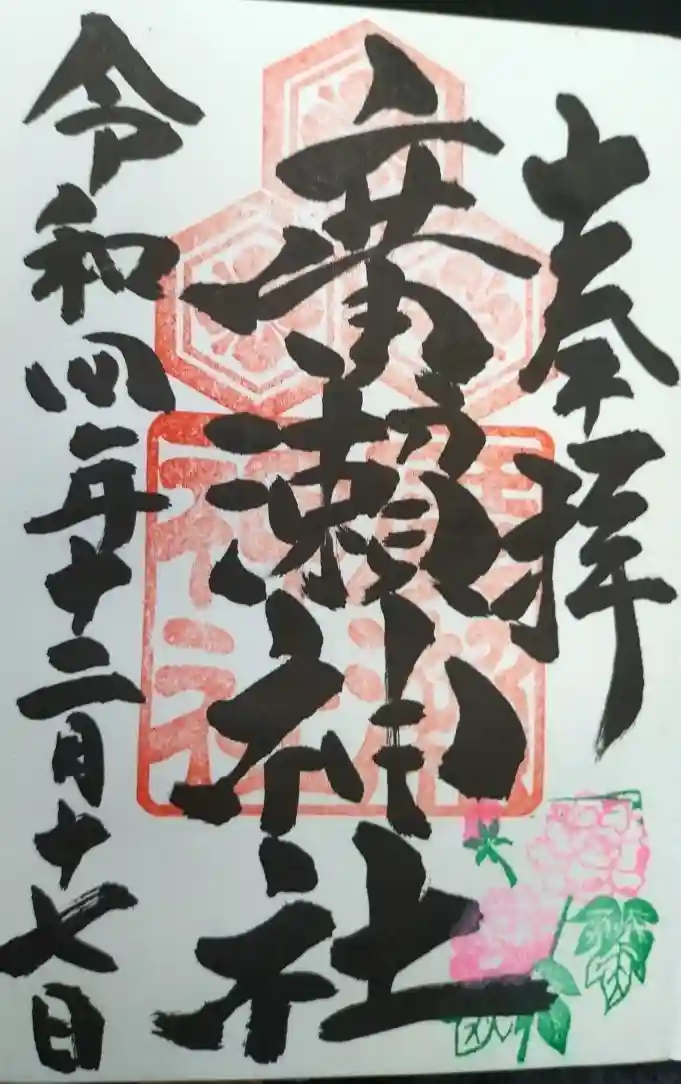 奉拝
廣瀬神社
廣瀬神社
令和四年十二月十七日